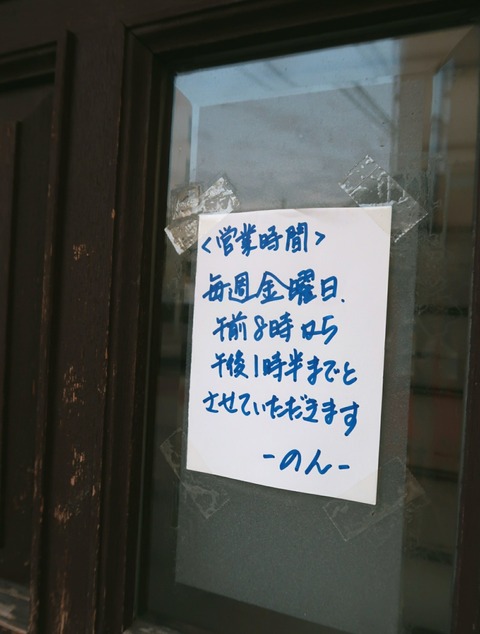 <営業時間>
毎週金曜日、
午前8時から
午後1時半までと
させていただきます
-のん-